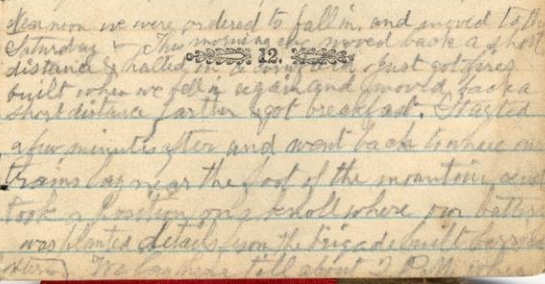 Near noon we were ordered to fall in and moved to the
Saturday This morning we moved back a short
12.
distance & halted in a Just got fires
built when we fell in again and moved back a
short distance farther & got breakfast. Stayed
a few minutes after and went back to where our
trains lay near the foot of the mountain and
took a position on a knoll where our battery
was planted details from the brigade built
We lay here till about 2 P.M. when